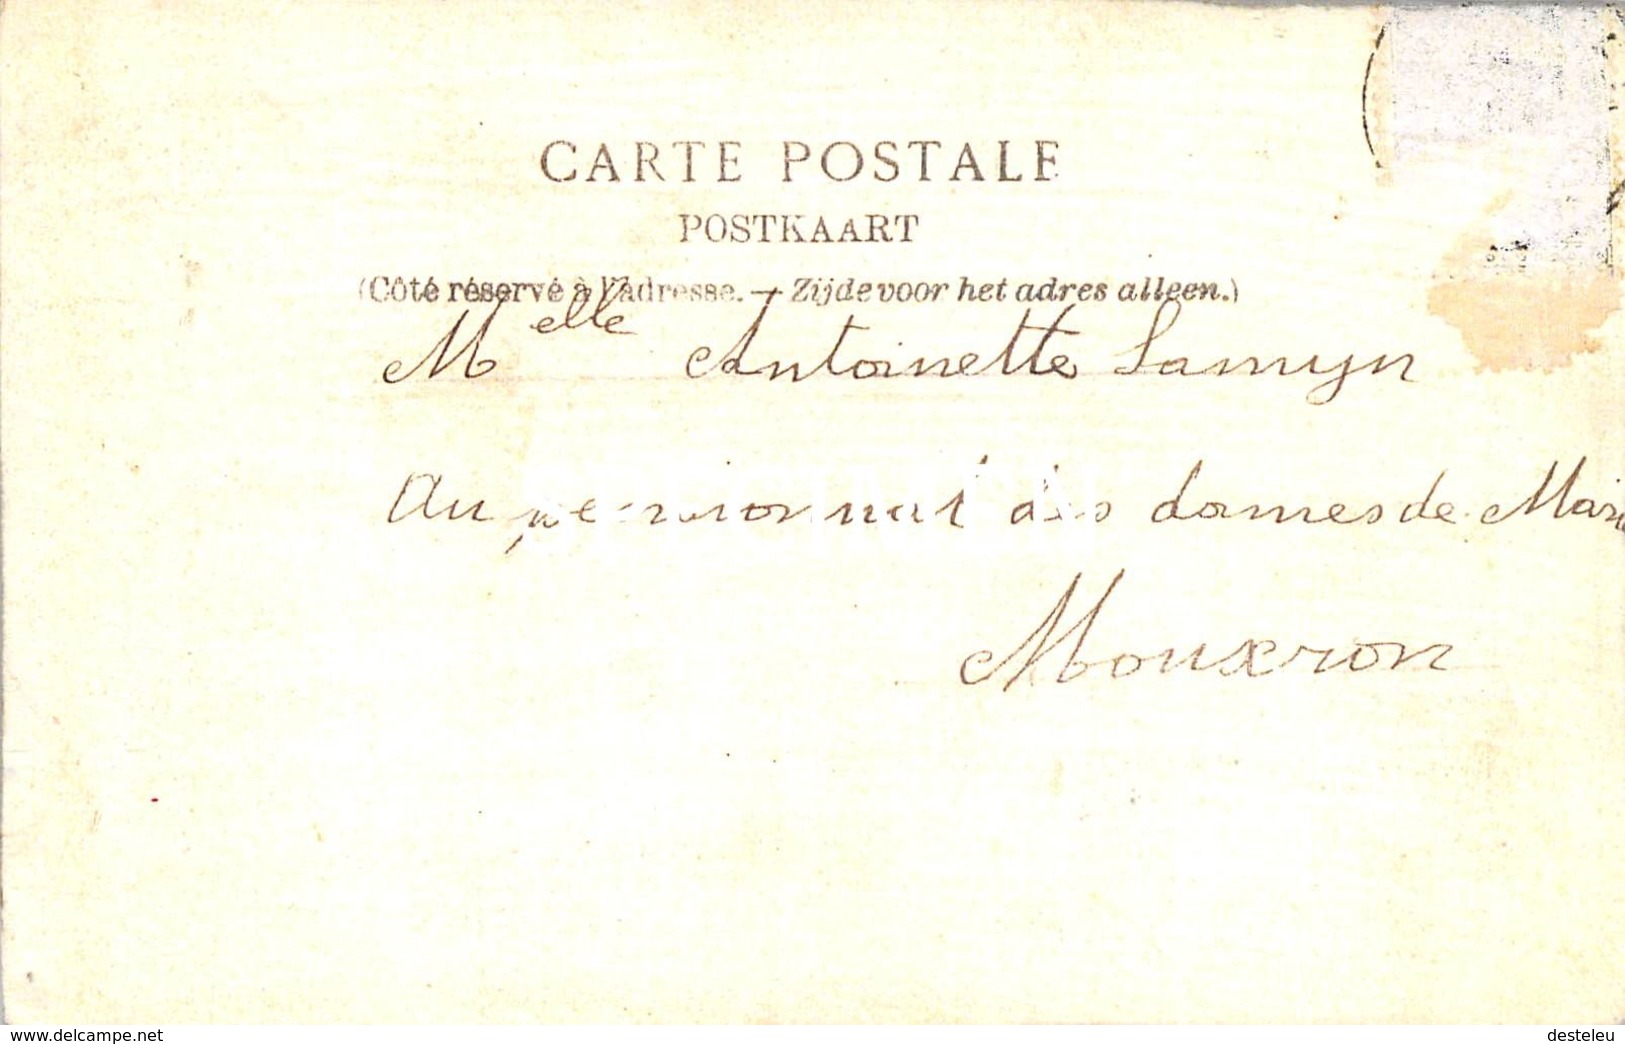 CARTE POSTALE
POSTKAART
(Côté réservé à l'adresse. — Zijde voor het adres alleen.)
Melle Antoinette Lamyn
Au pensionnat des dames de Marie
Mouxron
www.delcampe.net
desteleu